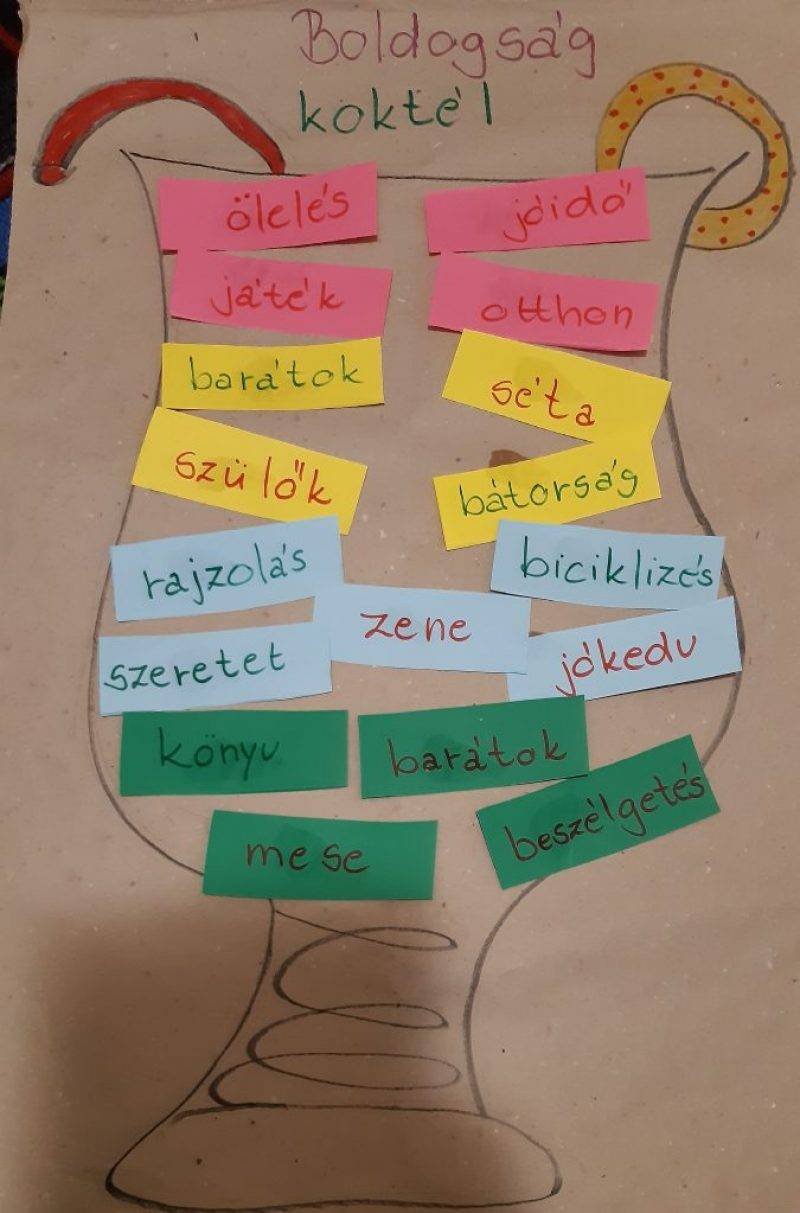 Boldogság
koktél
ölelés
jóidő
játék
otthon
barátok
séta
szülők
bátorság
rajzolás
biciklizés
zene
szeretet
jókedv
könyv
barátok
beszélgetés
mese